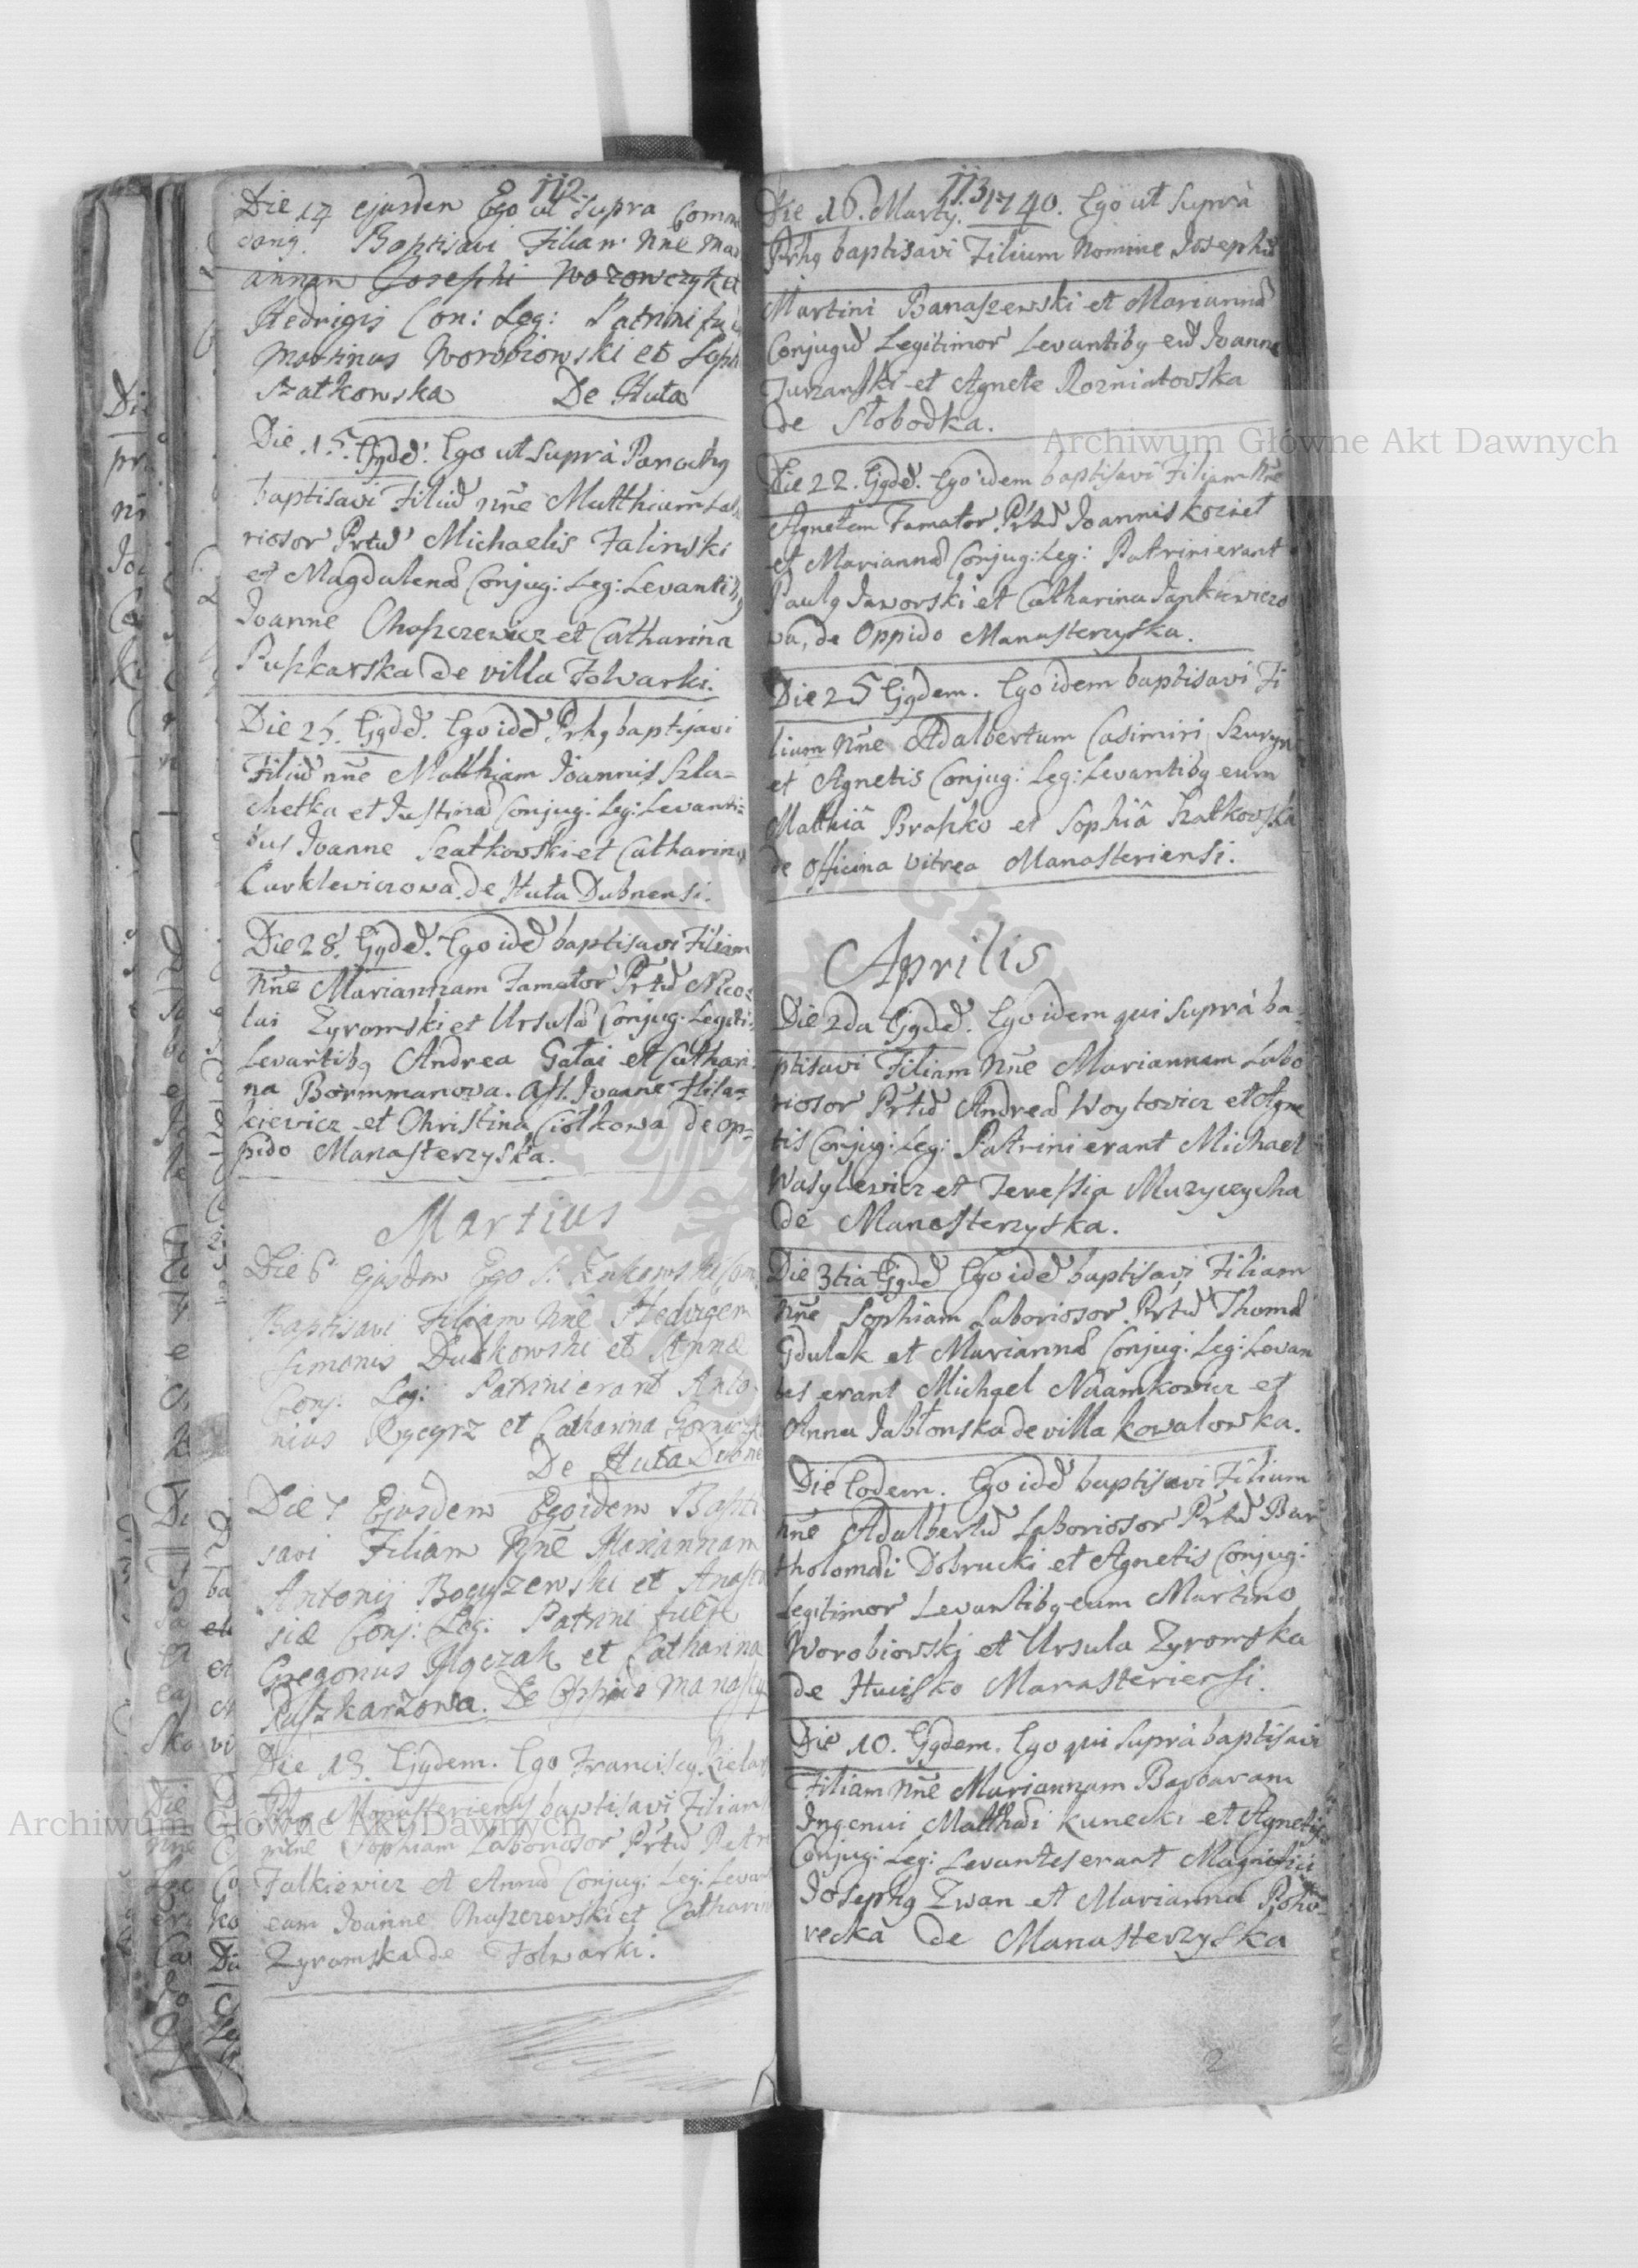 112.
Die 14 ejusdem Ego ut supra Comm
Baptisavi Filiam Nnē Mari
annam Josephi Wozowczyk et
Hedvigis Con: Leg: Patrini fue
Martinus Worobiowski et Soph
Szatkowska De Huta
Die 15. Ejgdē. Ego ut suprà Parochg
baptisavi Filiū nnē Matthiam Labo
riosor Prtū Michaelis Falinski
et Magdalenæ Conjug: Leg: Levantibg
Joanne Chaszczewicz et Catharina
Puszkarska de villa Folwarki.
Die 25. Ejgdē. Ego idē Prhg baptisavi
Filiū nnē Matthiam Joannis Szla-
chetka et Justinæ Conjug: Leg: Levanti-
bus Joanne Szatkowski et Catharina
Curklewiczowa de Huta Dubnensi.
Die 28. Ejgdē. Ego idē baptisavi Filiam
Nnē Mariannam Famator Prtū Nico-
lai Zyromski et Ursulæ Conjug. Legiti:
Levantibg Andrea Gałai et Cathari-
na Bormmanowa. Ass. Joanne Hila-
kiewicz et Christina Ciołkowa de op-
pido Manasterzyska.
Martius
Die 6 Ejusdem Ego S. Zukowski Com
Baptisavi Filiam Nnē Hedvigem
Simonis Dutkowski et Annæ
Conj. Leg: Patrini erant Anto-
nius Rycyrz et Catharina
De Huta Dubne
Die 7 Ejusdem Ego idem Bapti
savi Filiam Nnē Mariannam
Antonij Boguszewski et Anasta
siæ Conj: Leg: Patrini
Gregorius et Catharina
Puszkarzowa. De Oppido Manaste
Die 13. Ejgdem. Ego Franciscg
Prhg Monasteriensis baptisavi Filiam
mine Sophiam Laboriosor Prtū Petri
Falkiewicz et Annæ Conjug: Leg: Levan
eam Joanne Chaszczewski et Catharina
Zyromska de Folwarki.
113
Die 16. Martÿ. 1740. Ego ut suprà
Prhg baptisavi Filium Nomine Josephū
Martini Banaszewski et Mariannæ
Conjugū Legitimor Levantibg eū Joanne
Turzanski et Agnete Rozniatovska
de Słobodka.
Die 22. Ejgdē. Ego idem baptisavi Filiam Nnē
Agnetem Famator Prtū Joannis Koziet
et Mariannæ Conjug: Leg: Patrini erant
Paulg Jaworski et Catharina Jankiewiczo
wa, de Oppido Manasterzyska.
Die 25 Ejgdem. Ego idem baptisavi Fi
lium Nnē Adalbertum Casimiri Szuryn
et Agnetis Conjug: Leg: Levantibg eum
Matthiâ Braszko et Sophiâ Szatkowska
de Officina Vitrea Manasteriensi.
Aprilis
Die 2da Ejgdē. Ego idem qui suprà ba-
ptisavi Filiam Nnē Mariannam Labo
riosor Prtū Andreæ Woytowicz et Agne
tis Conjug: Leg: Patrini erant Michael
Wasylewicz et Teressia Muzyczycha
de Manasterzyska.
Die 3tia Ejgdē Ego idē baptisavi Filiam
Nnē Sophiam Laboriosor Prtū Thomæ
Gdulak et Mariannæ Conjug: Leg: Levan
tes erant Michael Naamkowicz et
Anna Jabłonska de villa Kowalowka.
Die Eodem. Ego idē baptisavi Filium
Nnē Adalbertū Laboriosor Prtū Bar
tholomæi Dobrucki et Agnetis Conjug:
Legitimor Levantibg eum Martino
Worobiowski et Ursula Zyromska
de Huisko Manasteriensi.
Die 10. Ejgdem. Ego qui suprà baptisavi
Filiam Nnē Mariannam Barbaram
Ingenui Matthæi Kunecki et Agnetis
Conjug: Leg: Levantes erant Magnifici
Josephg Zwan et Marianna Poho-
recka de Manasterzyska
2
Archiwum Główne Akt Dawnych
Archiwum Główne Akt Dawnych